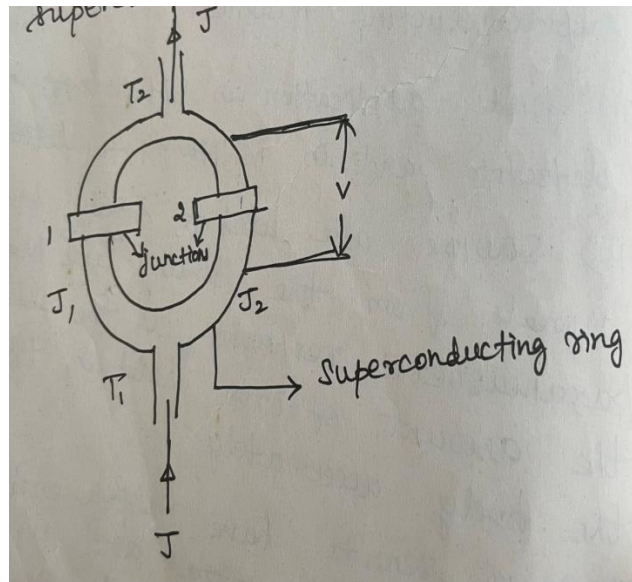 J
T2
V
1
2
junction
J1
J2
superconducting ring
T1
J